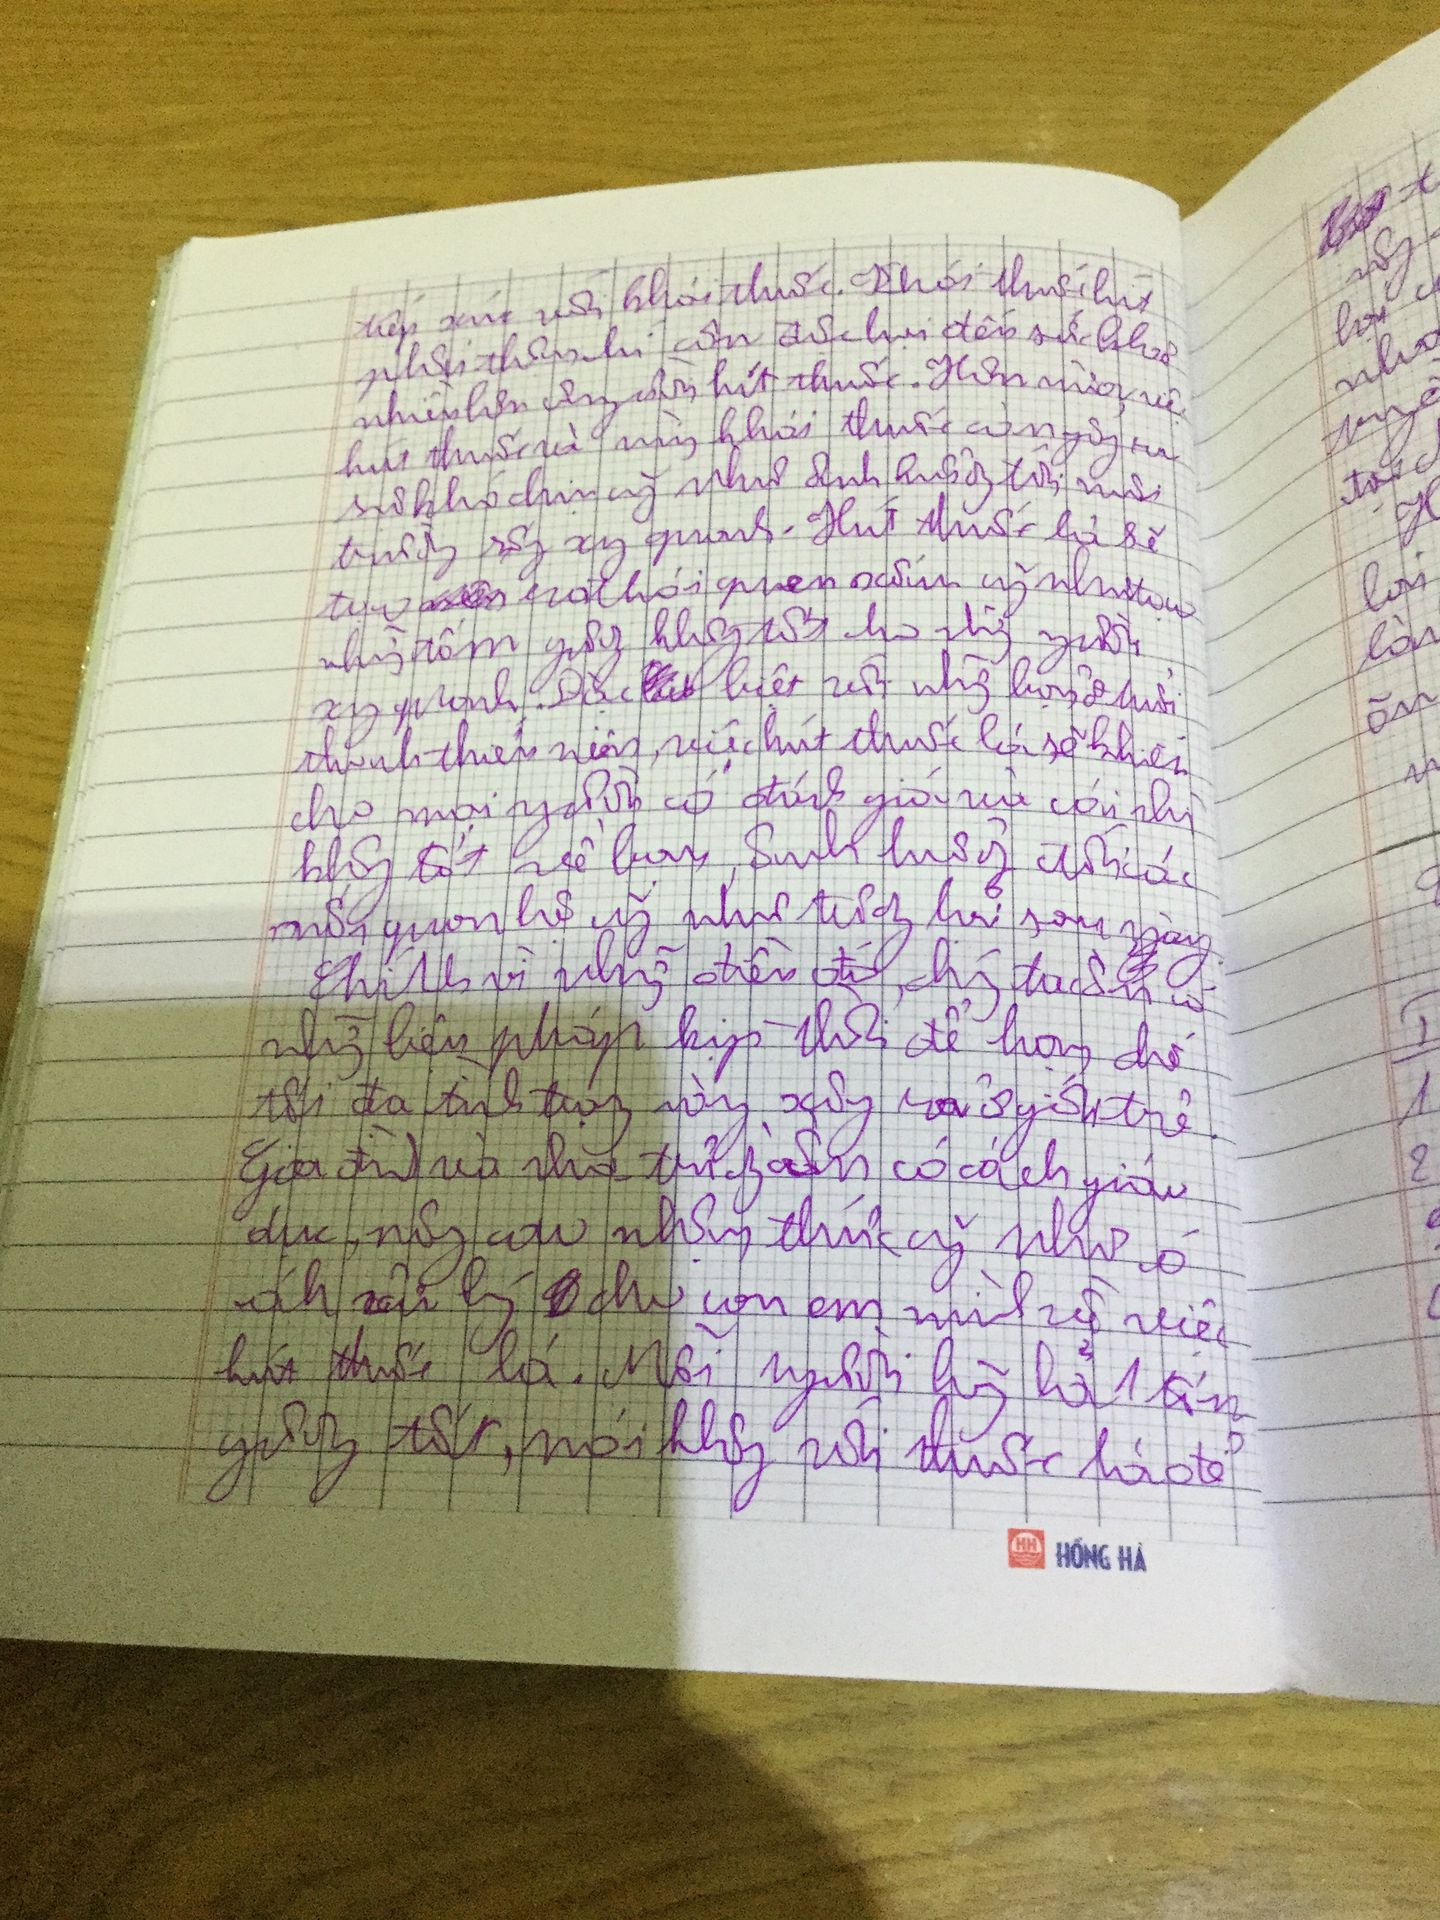 tiếp xúc với khói thuốc. Khói thuốc hút
thậm chí còn độc hại đến sức khoẻ
nhiều hơn cả người hút thuốc. Hơn nữa, việc
hút thuốc và mùi khói thuốc còn gây ra
sự khó chịu cũng như ảnh hưởng tới môi
trường sống xung quanh. Hút thuốc lá sẽ
tạo ra thói quen xấu cũng như tạo
những tấm gương không tốt cho những người
xung quanh. Đặc biệt với những bạn ở tuổi
thanh thiếu niên, việc hút thuốc lá sẽ khiến
cho mọi người có đánh giá và cái nhìn
không tốt về bạn, ảnh hưởng đến các
mối quan hệ cũng như tương lai sau này.
Chính vì những điều đó, chúng ta cần có
những biện pháp kịp thời để hạn chế
tối đa tình trạng này xảy ra ở giới trẻ.
Gia đình và nhà trường cần có cách giáo
dục, nâng cao nhận thức cũng như có
cách xử lý cho con em mình về việc
hút thuốc lá. Mỗi người hãy là 1 tấm
gương tốt, nói không với thuốc lá để
HỒNG HÀ
HH
1
2